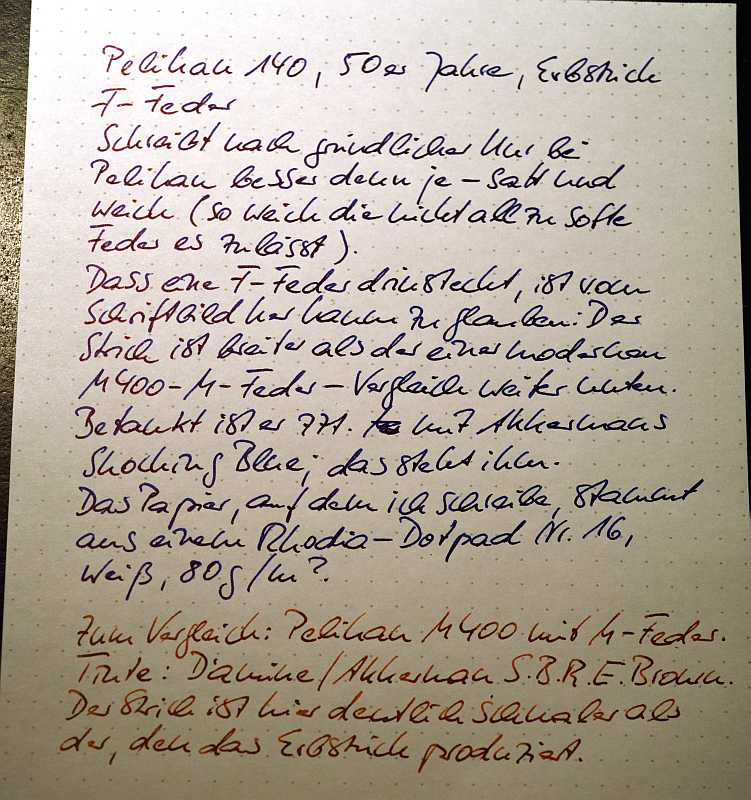 Pelikan 140, 50er Jahre, Erbstück
F-Feder
Schreibt nach gründlicher Kur bei
Pelikan besser denn je – satt und
weich (so weich die nicht allzu softe
Feder es zulässt).
Dass eine F-Feder drinsteckt, ist vom
Schriftbild her kaum zu glauben: Der
Strich ist breiter als der einer modernen
M400-M-Feder – Vergleich weiter unten.
Betankt ist er zzt. mit Akkermans
Shocking Blue; das steht ihm.
Das Papier, auf dem ich schreibe, stammt
aus einem Rhodia-Dotpad Nr. 16,
weiß, 80g/m².
Zum Vergleich: Pelikan M400 mit M-Feder.
Tinte: Diamine/Akkerman S.B.R.E. Brown.
Der Strich ist hier deutlich schmaler als
der, den das Erbstück produziert.